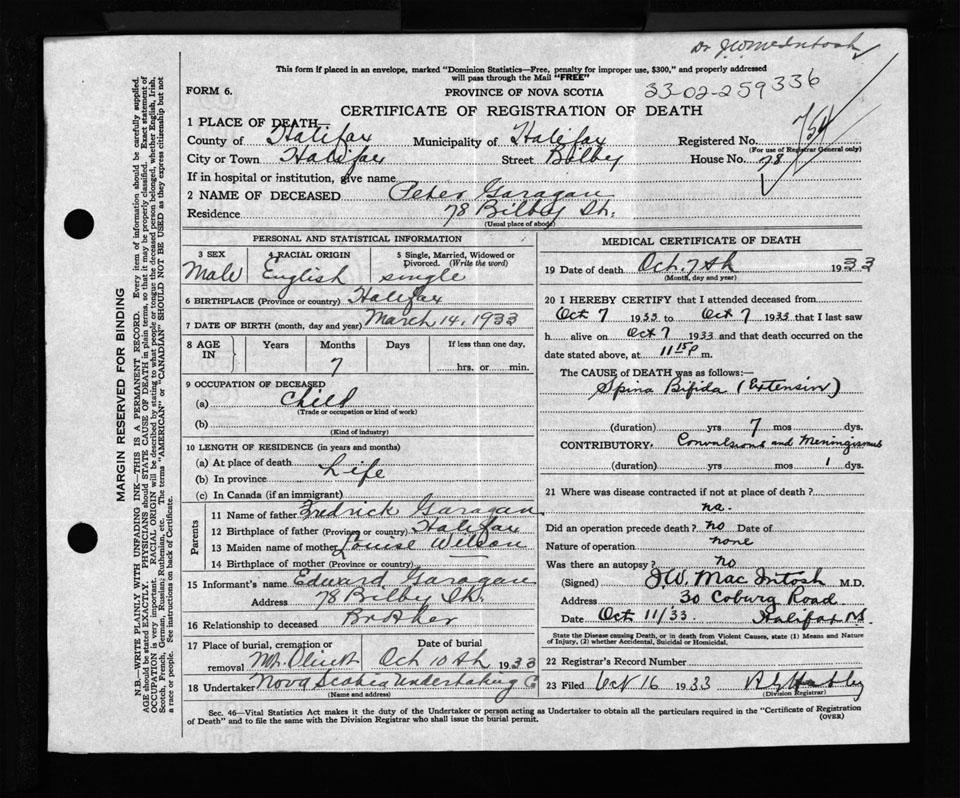 Dr J.W. McIntosh
This form if placed in an envelope, marked "Dominion Statistics—Free, penalty for improper use, $300," and properly addressed
will pass through the Mail "FREE"
FORM 6.
PROVINCE OF NOVA SCOTIA
33-02-259336
CERTIFICATE OF REGISTRATION OF DEATH
1 PLACE OF DEATH—
County of Halifax Municipality of Halifax Registered No. 754
(For use of Registrar General only)
City or Town Halifax Street Bilby House No. 78
If in hospital or institution, give name
2 NAME OF DECEASED Peter Garagan
Residence 78 Bilby St.
(Usual place of abode)
PERSONAL AND STATISTICAL INFORMATION
3 SEX 4 RACIAL ORIGIN 5 Single, Married, Widowed or
Divorced. (Write the word)
Male English single
6 BIRTHPLACE (Province or country) Halifax
7 DATE OF BIRTH (month, day and year) March 14, 1933
8 AGE IN Years Months Days If less than one day,
7 hrs. or min.
9 OCCUPATION OF DECEASED
(a) Child
(Trade or occupation or kind of work)
(b)
(Kind of industry)
10 LENGTH OF RESIDENCE (in years and months)
(a) At place of death
(b) In province Life
(c) In Canada (if an immigrant)
Parents
11 Name of father Fredrick Garagan
12 Birthplace of father (Province or country) Halifax
13 Maiden name of mother Louise Wilson
14 Birthplace of mother (Province or country)
15 Informant's name Edward Garagan
Address 78 Bilby St.
16 Relationship to deceased Brother
17 Place of burial, cremation or Date of burial
removal Mt. Olivet Oct 10th 1933
18 Undertaker Nova Scotia Undertaking C
(Name and address)
MEDICAL CERTIFICATE OF DEATH
19 Date of death Oct. 7th 1933
(Month, day and year)
20 I HEREBY CERTIFY that I attended deceased from
Oct 7 1933 to Oct 7 1933 that I last saw
h alive on Oct 7 1933 and that death occurred on the
date stated above, at 11 15 P m.
The CAUSE OF DEATH was as follows:—
Spina Bifida (Extensin)
(duration) yrs 7 mos dys.
CONTRIBUTORY. Convulsions and Meningismus
(duration) yrs mos 1 dys.
21 Where was disease contracted if not at place of death?
na.
Did an operation precede death? no Date of
Nature of operation none
Was there an autopsy? no
(Signed) J.W. MacIntosh M.D.
Address 30 Coburg Road
Date Oct 11/33. Halifax N.S.
State the Disease causing Death, or in death from Violent Causes, state (1) Means and Nature
of Injury, (2) whether Accidental, Suicidal or Homicidal.
22 Registrar's Record Number
23 Filed Oct 16 1933
(Division Registrar)
Sec. 46—Vital Statistics Act makes it the duty of the Undertaker or person acting as Undertaker to obtain all the particulars required in the "Certificate of Registration
of Death" and to file the same with the Division Registrar who shall issue the burial permit. (OVER)
MARGIN RESERVED FOR BINDING
N.B.—WRITE PLAINLY WITH UNFADING INK—THIS IS A PERMANENT RECORD. Every item of information should be carefully supplied.
AGE should be stated EXACTLY. PHYSICIANS should STATE CAUSE OF DEATH in plain terms, so that it may be properly classified. Exact statement of
OCCUPATION is very important. RACIAL ORIGIN will be described by stating to what people or tongue the deceased person belonged, whether English, Irish,
Scotch, French, German, Russian; Ruthenian, etc. The terms "AMERICAN" or "CANADIAN" SHOULD NOT BE USED as they express citizenship but not
a race or people. See instructions on back of Certificate.